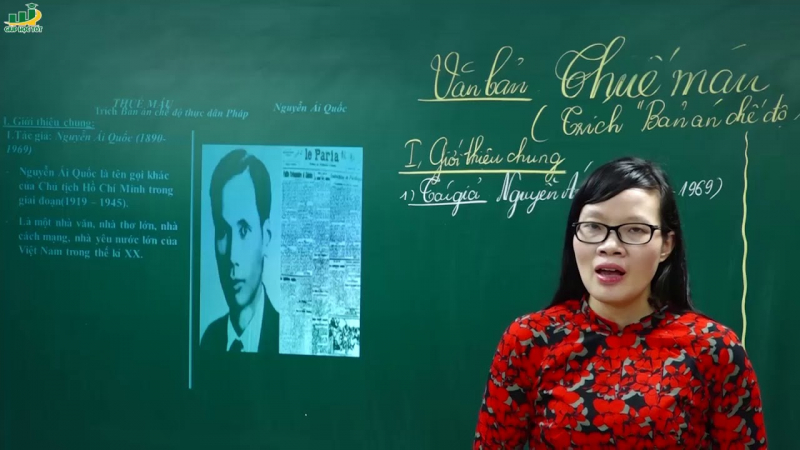 GIÚP HỌC TỐT
THUẾ MÁU
Trích Bản án chế độ thực dân Pháp
Nguyễn Ái Quốc
I. Giới thiệu chung:
1.Tác giả: Nguyễn Ái Quốc (1890-
1969)
- Nguyễn Ái Quốc là tên gọi khác
của Chủ tịch Hồ Chí Minh trong
giai đoạn(1919 – 1945).
- Là một nhà văn, nhà thơ lớn, nhà
cách mạng, nhà yêu nước lớn của
Việt Nam trong thế kỉ XX.
le Paria
Văn bản Thuế máu
( Trích "Bản án chế độ
I, Giới thiệu chung
1) Tác giả Nguyễn Á 1969)